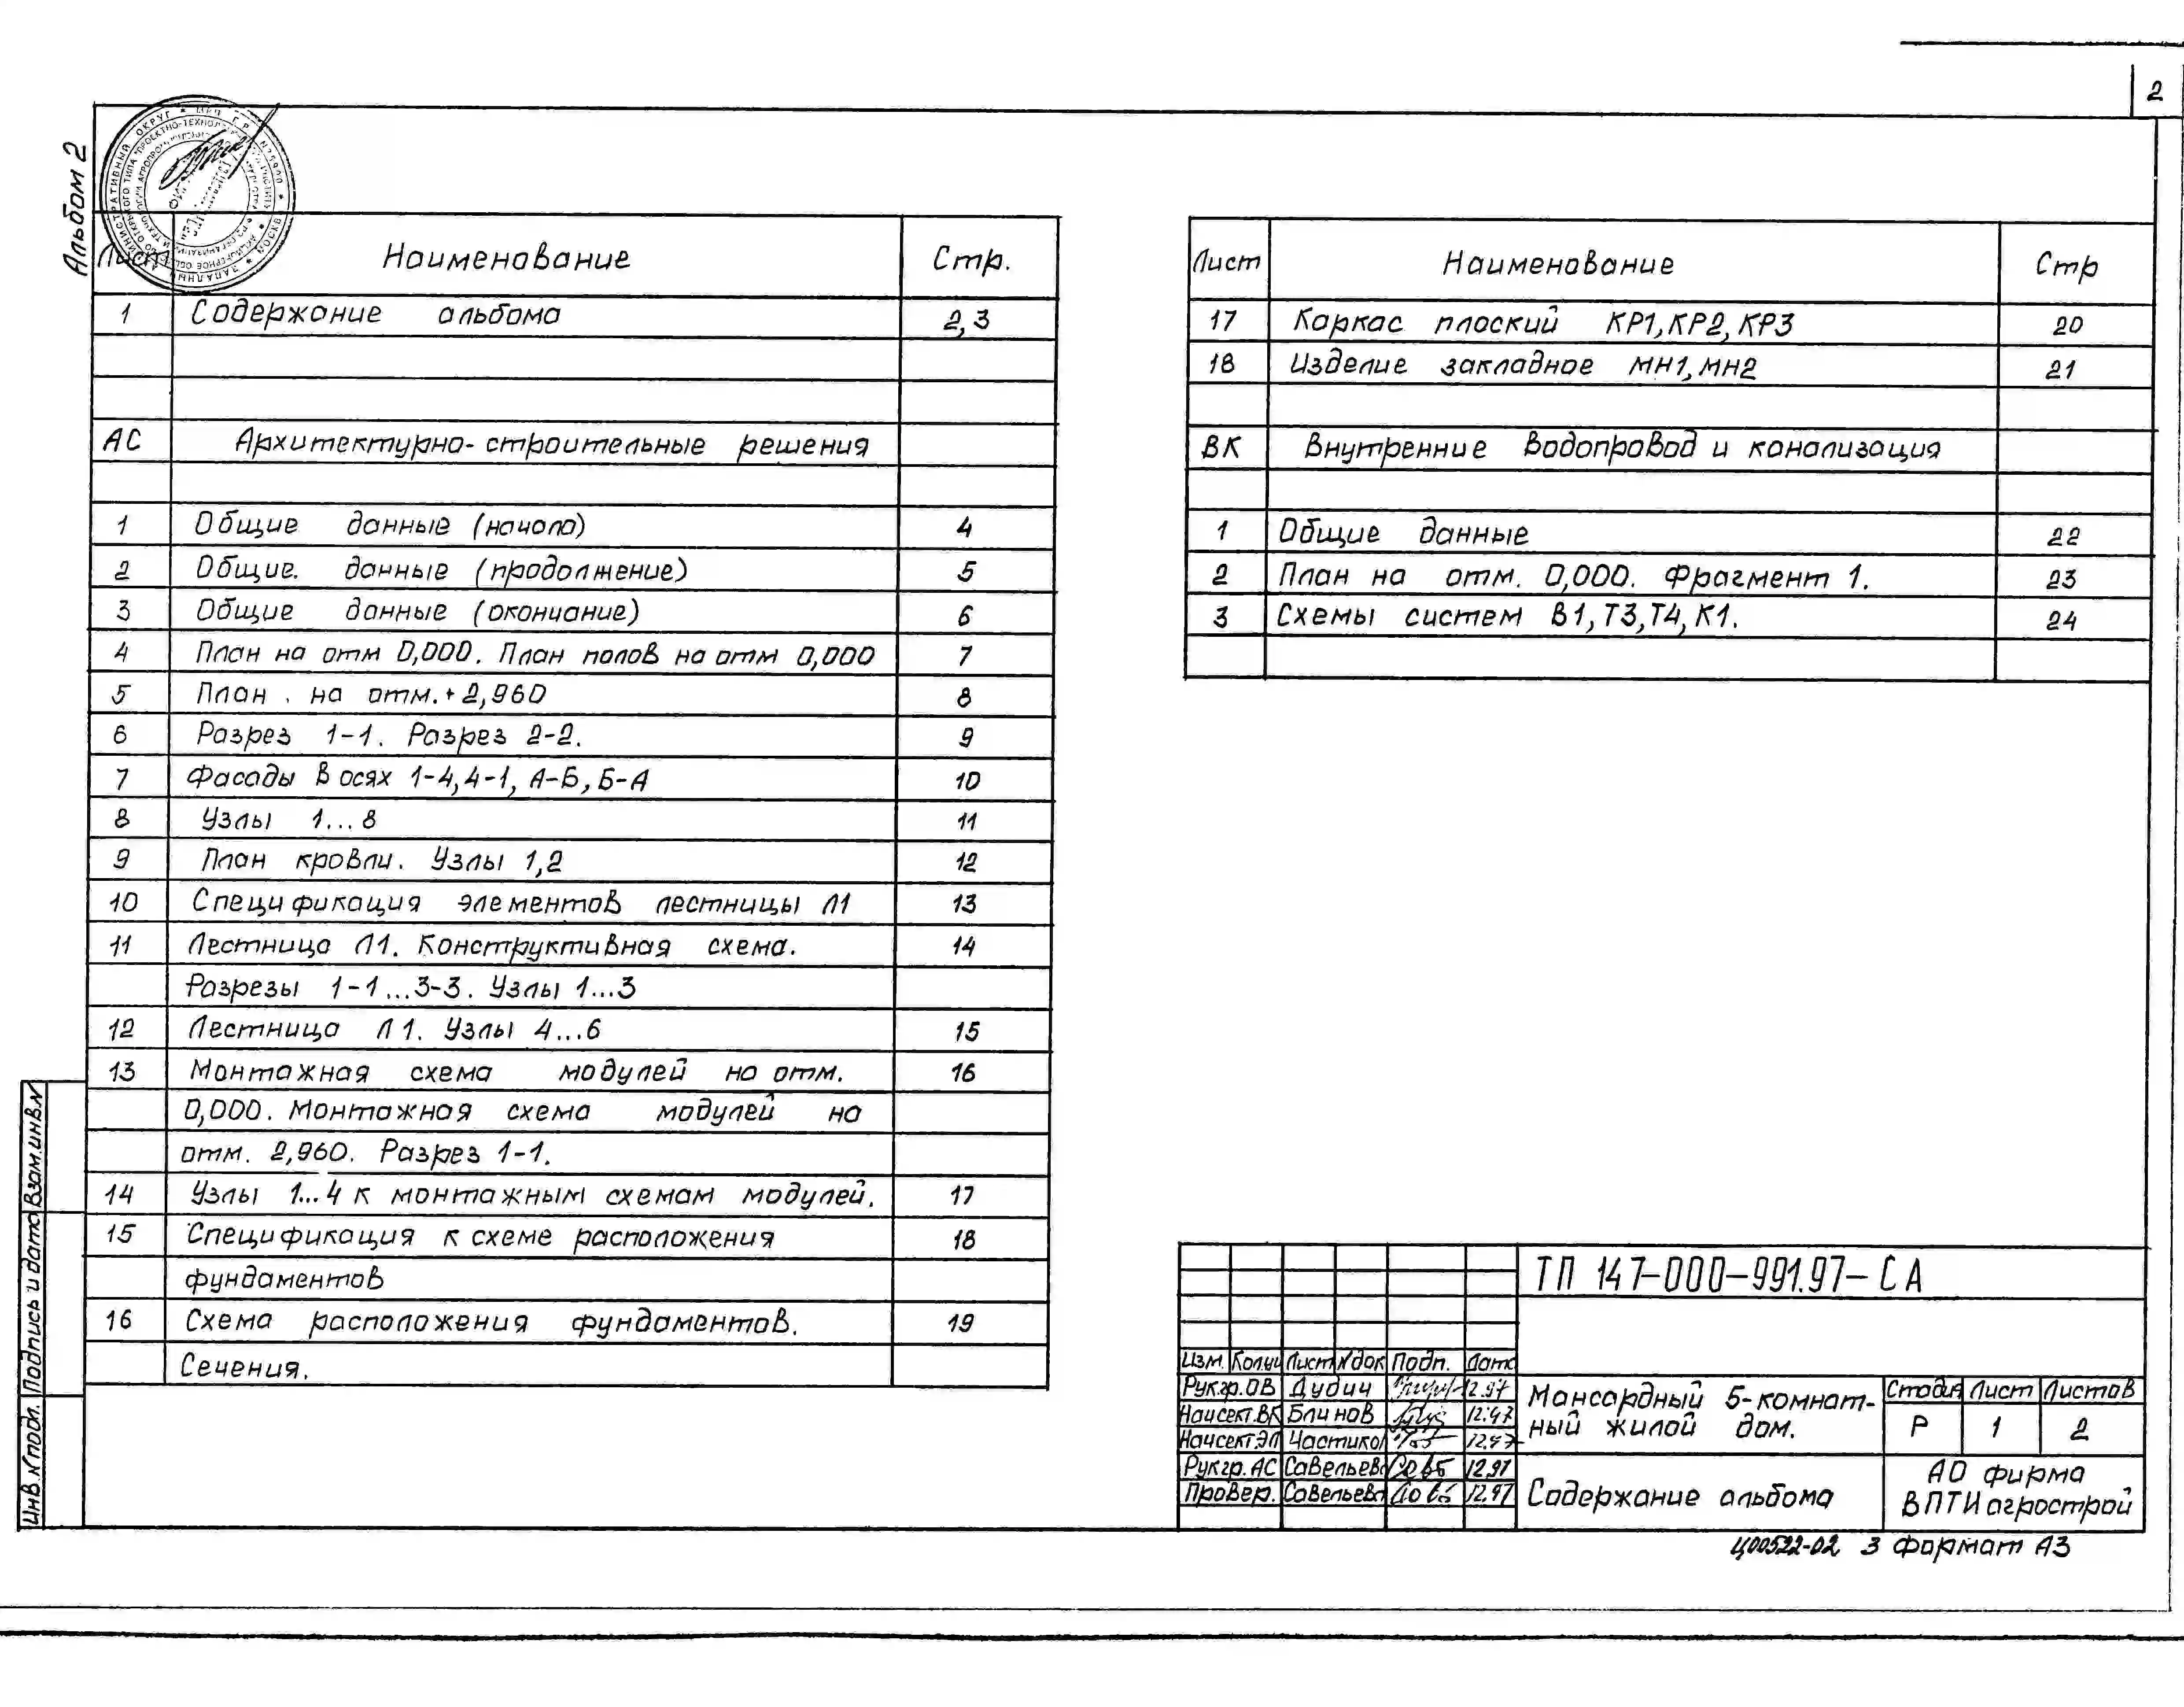 2
Альбом 2
Лист Наименование Стр.
1 Содержание альбома 2,3
АС Архитектурно-строительные решения
1 Общие данные (начало) 4
2 Общие. данные (продолжение) 5
3 Общие данные (окончание) 6
4 План на отм 0,000. План полов на отм 0,000 7
5 План . на отм.+2,960 8
6 Разрез 1-1. Разрез 2-2. 9
7 Фасады в осях 1-4,4-1, А-Б,Б-А 10
8 Узлы 1...8 11
9 План кровли. Узлы 1,2 12
10 Спецификация элементов лестницы Л1 13
11 Лестница Л1. Конструктивная схема. 14
Разрезы 1-1...3-3. Узлы 1...3
12 Лестница Л1. Узлы 4...6 15
13 Монтажная схема модулей на отм. 16
0,000. Монтажная схема модулей на
отм. 2,960. Разрез 1-1.
14 Узлы 1...4 к монтажным схемам модулей. 17
15 Спецификация к схеме расположения 18
фундаментов
16 Схема расположения фундаментов. 19
Сечения.
Лист Наименование Стр
17 Каркас плоский КР1,КР2,КР3 20
18 Изделие закладное МН1,МН2 21
ВК Внутренние водопровод и канализация
1 Общие данные 22
2 План на отм. 0,000. Фрагмент 1. 23
3 Схемы систем В1,Т3,Т4,К1. 24
Инв.№подл. Подпись и дата Взам.инв.№
ТП 147-000-991.97-СА
Изм. Кол.уч Лист №док Подп. Дата
Рук.гр.ОВ Дудич 12.97
Нач.сект.ВК Блинов 12.97
Нач.сект.ЭЛ Частико 12.97
Рук.гр.АС Савельева 12.97
Провер. Савельева 12.97
Мансардный 5-комнат-
ный жилой дом.
Стадия Лист Листов
Р 1 2
Содержание альбома
АО фирма
ВПТИагрострой
Ц00522-02 3 Формат А3